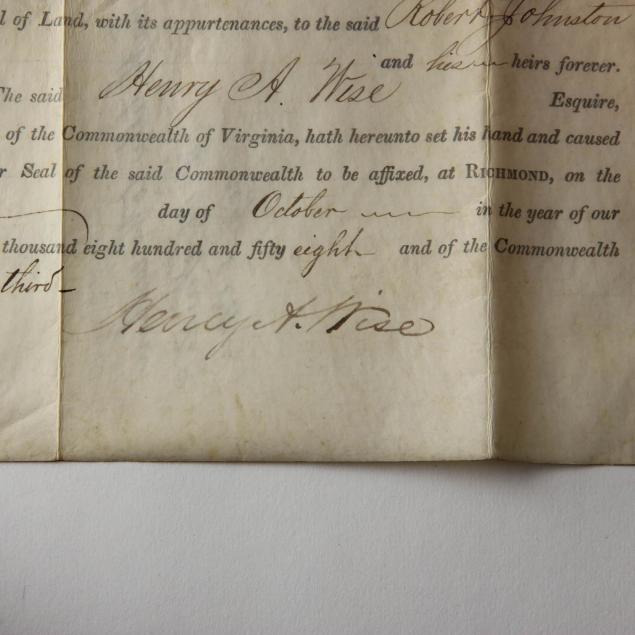 l of Land, with its appurtenances, to the said Robert Johnston
and his heirs forever.
The said Henry A. Wise Esquire,
of the Commonwealth of Virginia, hath hereunto set his hand and caused
r Seal of the said Commonwealth to be affixed, at RICHMOND, on the
day of October in the year of our
thousand eight hundred and fifty eight and of the Commonwealth
third
Henry A. Wise